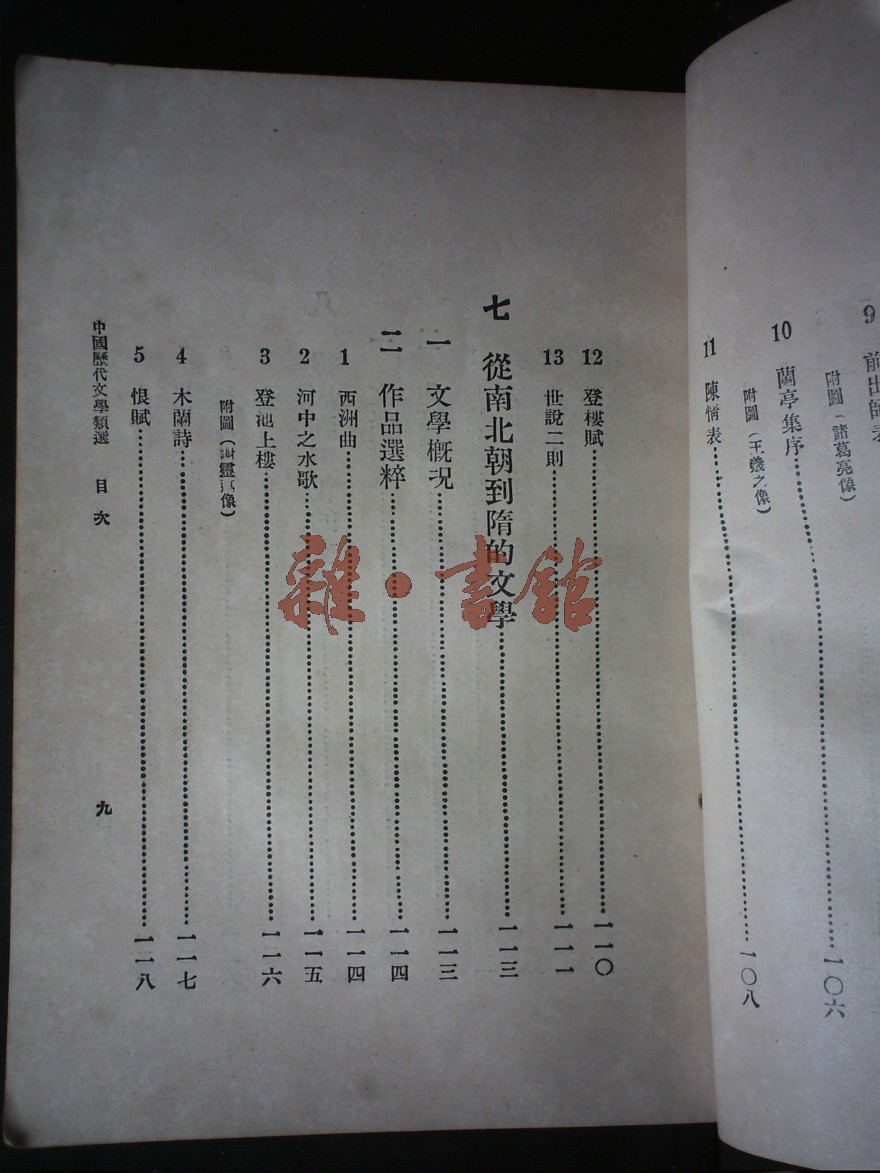 9 前出師表
附圖(諸葛亮像)
10 蘭亭集序……一〇六
附圖(王羲之像)
11 陳情表……一〇八
12 登樓賦……一一〇
13 世說二則……一一一
七 從南北朝到隋的文學……一一三
一 文學概況……一一三
二 作品選粹……一一四
1 西洲曲……一一四
2 河中之水歌……一一五
3 登池上樓……一一六
附圖(謝靈運像)
4 木蘭詩……一一七
5 恨賦……一一八
中國歷代文學類選 目次
九
雜·書館